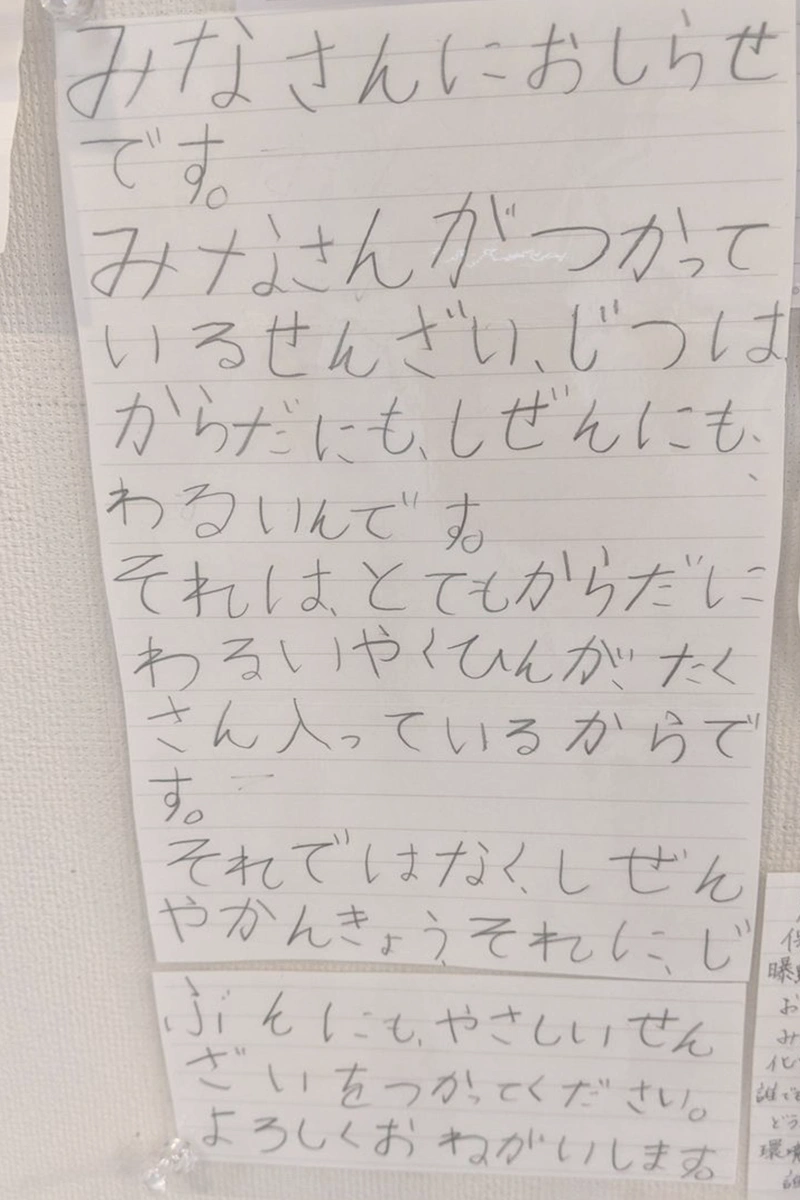 みなさんにおしらせ
です。
みなさんがつかって
いるせんざい、じつは
からだにも、しぜんにも、
わるいんです。
それは、とてもからだに
わるいやくひんが、たく
さん入っているからで
す。
それではなく、しぜん
やかんきょう、それに、じ
ぶんにも、やさしいせん
ざいをつかってください。
よろしくおねがいします。
お
み
化
誰でも
どう
環境